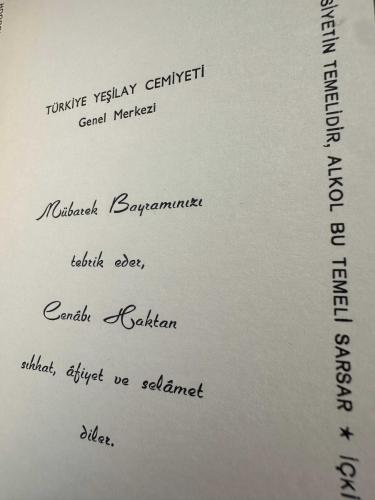 TÜRKİYE YEŞİLAY CEMİYETİ
Genel Merkezi
Mübarek Bayramınızı
tebrik eder,
Cenâbı Haktan
sıhhat, âfiyet ve selâmet
diler.
SİYETİN TEMELİDİR, ALKOL BU TEMELİ SARSAR ★ İÇKİ